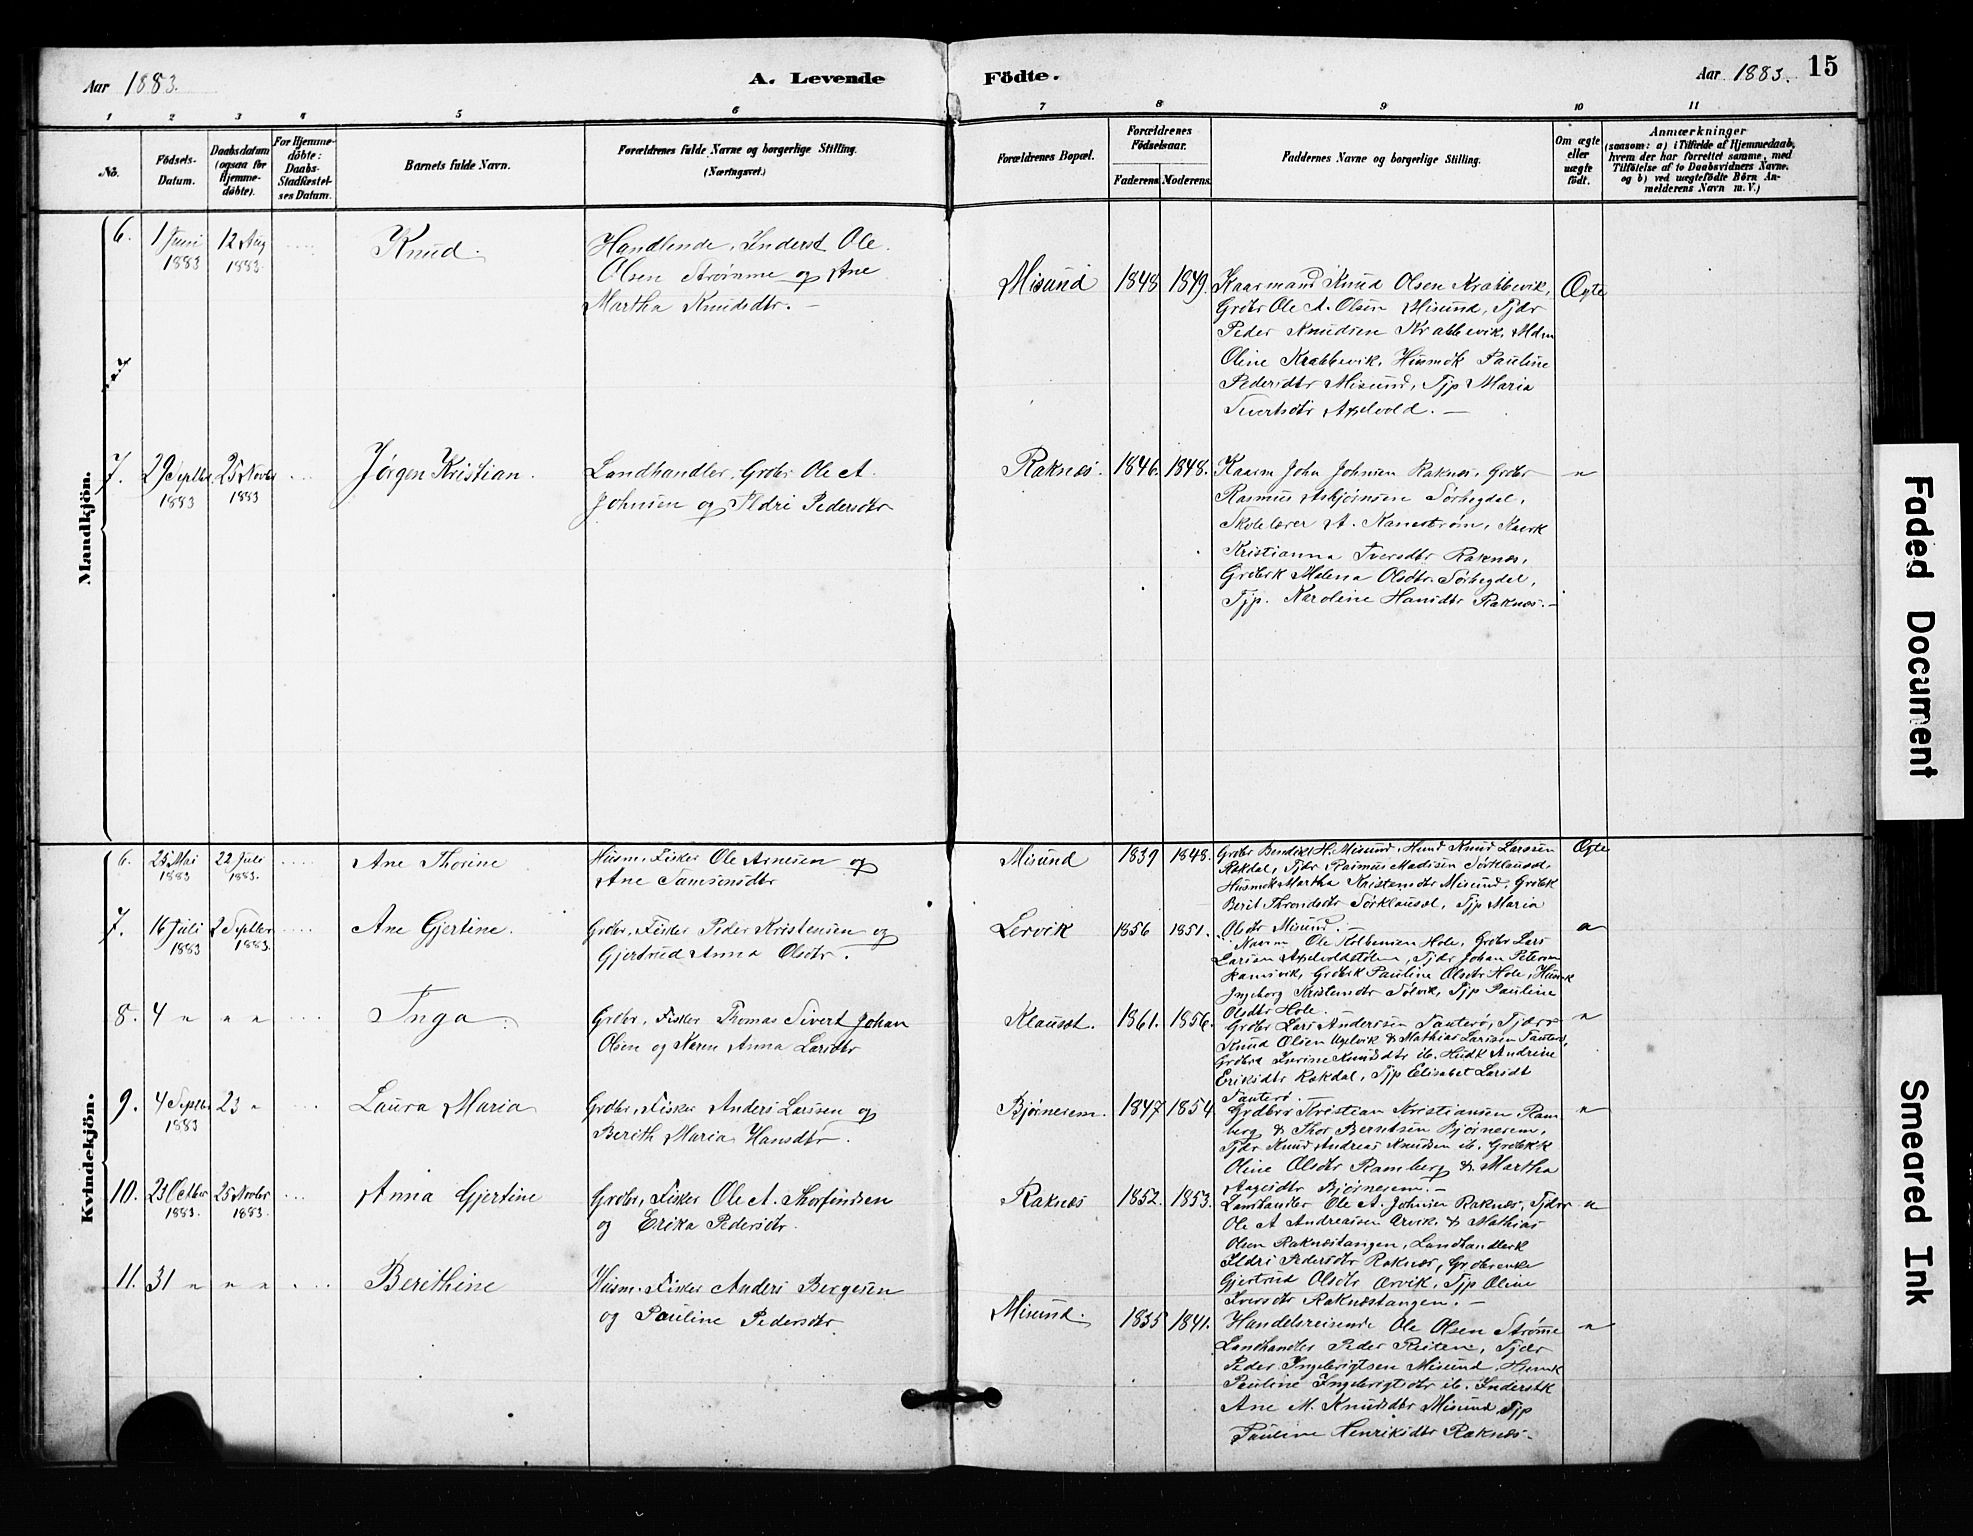 Aar 1883.
A. Levende
Födte.
Aar 1883.
15
1
2
3
4
5
6
7
8
9
10
11
No.
Födsels-
Datum.
Daabsdatum
(ogsaa for
Hjemme-
döbte).
For Hjemme-
döbte:
Daabs-
Stadfæstel-
ses Datum.
Barnets fulde Navn.
Forældrenes fulde Navne og borgerlige Stilling.
(Næringsvei.)
Forældrenes Bopæl.
Forældrenes
Födselsaar.
Faderens.
Moderens.
Faddernes Navne og borgerlige Stilling.
Om ægte
eller
uægte
födt.
Anmærkninger
(saasom: a) i Tilfælde af Hjemmedaab,
hvem der har forrettet samme, med
Tilföielse af to Daabsvidners Navne.
og b) ved uægtefödte Börn An-
melderens Navn m. V.)
Mandkjön.
6.
1 Juni
1883
12 Aug
1883.
Knud.
Handlende, Inderst Ole
Olsen Strømme og Ane
Martha Knudsdtr. —
Misund
1848
1849.
Kaarmand Knud Olsen Krabbevik,
Grdbr Ole A. Olsen Misund, Tjdr
Peder Knudsen Krabbevik,
Oline Krabbevik, Husmdk Pauline
Pedersdtr Misund, Tjp Maria
Sivertsdtr Axelvold. —
Ægte
7.
29 Septbr
1883
25 Novbr
1883
Jørgen Kristian.
Landhandler, Grdbr Ole A.
Johnsen og Ildri Pedersdtr
Raknæs.
1846.
1848.
Kaarm John Johnsen Raknæs, Grdbr
Rasmus Asbjørnsen Sørbøgdal,
Skolelærer A. Kanestrøm, Kaark
Kristianna Iversdtr Raknæs,
Grdbrk Malena Olsdtr Sørbøgdal,
Tjp. Karoline Hansdtr Raknæs. —
"
Kvindekjön.
6.
25 Mai
1883
22 Juli
1883.
Ane Thorine
Husm. Fisker Ole Arnesen og
Ane Samsonsdtr
Misund
1839
1848.
Grdbr Bendik H. Misund, Husmd Knud Larssen
Rakdal, Tjdr, Rasmus Madisen Sørklauset,
Husmdk Martha Kristensdtr Misund, Grdbrk
Berit Throndsdtr Sørklauset, Tjp Maria
Olsdtr Misund. —
Ægte
7.
16 Juli
1883
2 Septbr
1883.
Ane Gjertine.
Grdbr, Fisker Peder Kristensen og
Gjertrud Anna Olsdtr.
Lervik
1856
1851.
Kaarm Ole Kolbensen Hole, Grdbr Lars
Larsen Axelvoldstølen, Tjdr Johan Petersen
Ramsvik, Grdbrk Pauline Olsdtr Hole, Husmk
Ingeborg Kristensdtr Sølvik, Tjp Pauline
Olsdtr Hole.
"
8.
4 "
" "
Inga.
Grdbr, Fisker Thomas Sivert Johan
Olsen og Karen Anna Larsdtr
Klauset.
1861.
1856.
Grdbr Lars Anderssen Tauterø, Tjdrr
Knud Olsen Uxelvik & Mathias Larssen Tauterø,
Grdbrd Serine Knudsdtr ib. Husdk Andrine
Eriksdtr Rakdal, Tjp Elisabet Larsdt
Tauterø.
"
9.
4 Septbr
1883
23 "
Laura Maria
Grdbr, Fisker Anders Larssen og
Berith Maria Hansdtr.
Bjørnerem.
1847
1854
Grdbrr Kristian Kristiansen Ram
berg & Thor Berntsen Bjørnerem,
Tjdr Knud Andreas Knudsen ib. Grdbrkk
Oline Olsdtr Ramberg & Martha
Aagesdtr Bjørnerem. —
"
10.
23 Octbr
1883.
25 Novbr
1883.
Anna Gjertine
Grdbr, Fisker Ole A. Thorfindsen
og Erika Pedersdtr.
Raknæs
1852.
1853.
Landhandler Ole A. Johnsen Raknæs, Tjdrr
Ole A Andreassen Ørvik, & Mathias
Olsen Raknæstangen, Landhandlerk
Ildri Pedersdtr Raknæs, Grdbrenke
Gjertrud Olsdtr Ørvik, Tjp Oline
Iversdtr Raknæstangen. —
"
11.
31 "
" "
Berithine
Husm. Fisker Anders Bergesen
og Pauline Pedersdtr
Misund.
1835
1841.
Handelsreisende Ole Olsen Strømme
Landhandler Peder Reiten, Tjdr
Peder Ingebrigtsen Misund, Husmk
Pauline Ingebrigtsdtr ib. Inderstk
Ane M. Knudsdtr Misund Tjp
Pauline Henriksdtr Raknæs. —
"
Faded Document
Smeared Ink